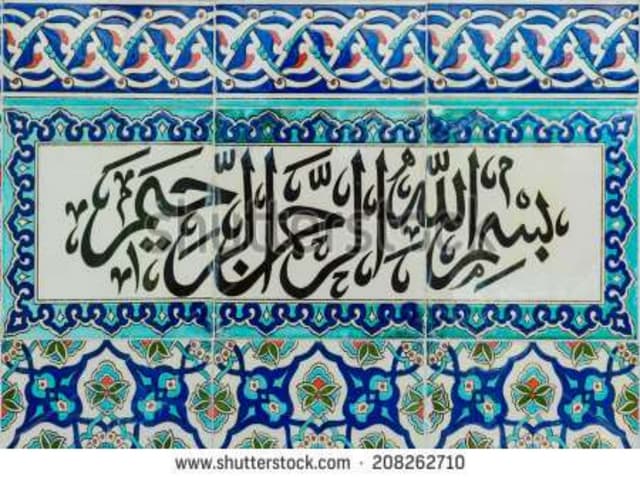 بسم الله الرحمن الرحيم
shutterstock
www.shutterstock.com · 208262710